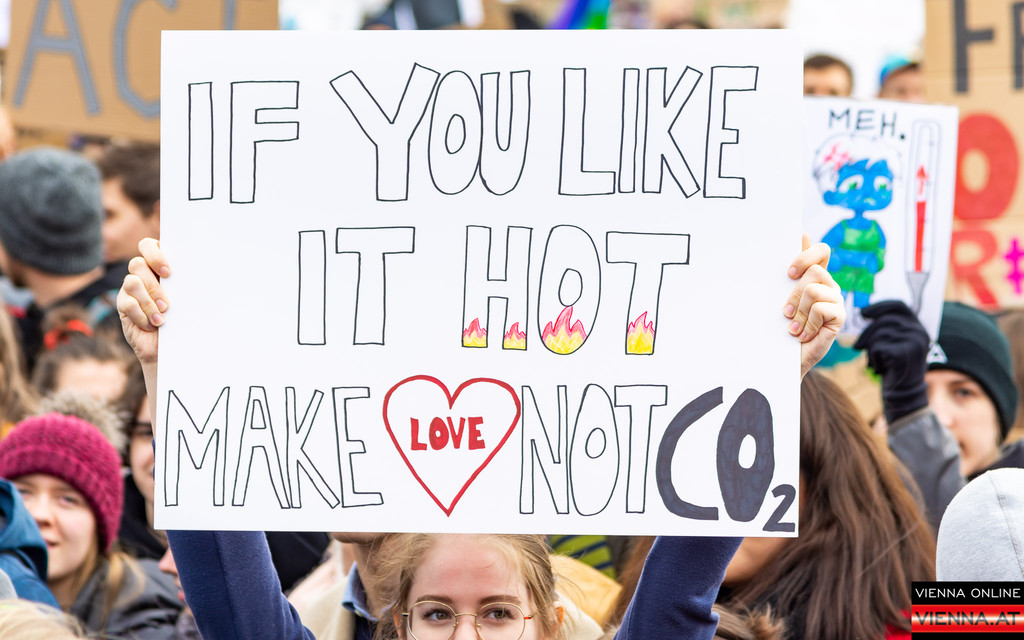 AC
MEH.
IF YOU LIKE
IT HOT
MAKE LOVE NOT CO₂
VIENNA ONLINE
VIENNA.AT